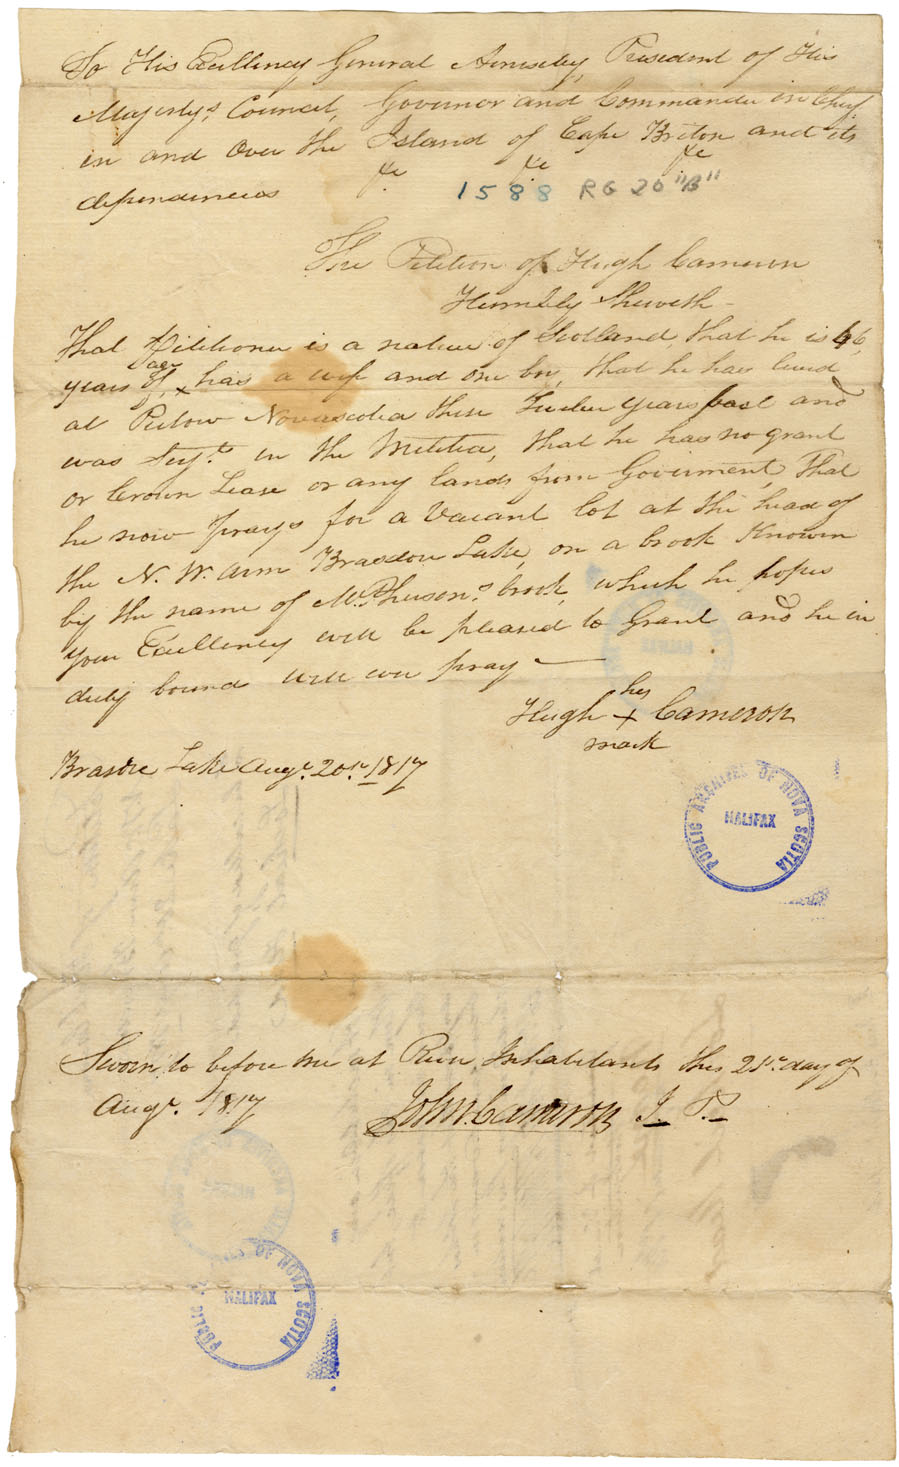 To His Excellency General Ainslie, President of His
Majesty's Council, Governor and Commander in Chief
in and Over the Island of Cape Breton and its
dependencies &c &c &c
1588 RG 20 "B"
The Petition of Hugh Cameron
Humbly Sheweth -
That Petitioner is a native of Scotland that he is 46
years of age, has a wife and one boy, that he has lived
at Pictow Novascotia these Twelve years past and
was Sejt. in the Militia, that he has no grant
or Crown Lease or any lands from Government, That
he now prays for a Vacant lot at the head of
the N. W. arm Brasdore Lake, on a brook Known
by the name of McPherson's brook, which he hopes
your Excellency will be pleased to Grant and he in
duty bound will ever pray —
Hugh his x mark Cameron
Brasdre Lake Augt. 20t. 1817
PUBLIC ARCHIVES OF NOVA SCOTIA
HALIFAX
Sworn to before me at River Inhabitants this 21st day of
Augt. 1817 John Cameron J. P.
PUBLIC ARCHIVES OF NOVA SCOTIA
HALIFAX